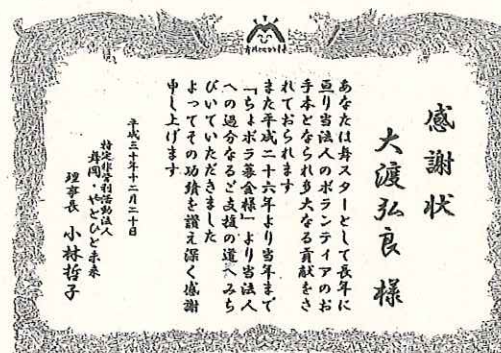 感謝状
大渡弘良 様
あなたは舞スターとして長年に
亘り当法人のボランティアのお
手本となられ多大なる貢献をさ
れておられます
また平成二十六年より当年まで
「ちょボラ募金様」より当法人
への過分なるご支援の道へみち
びいていただきました
よってその功績を讃え深く感謝
申し上げます
平成三十年十二月二十日
特定非営利活動法人
舞岡・やとひと未来
理事長 小林哲子